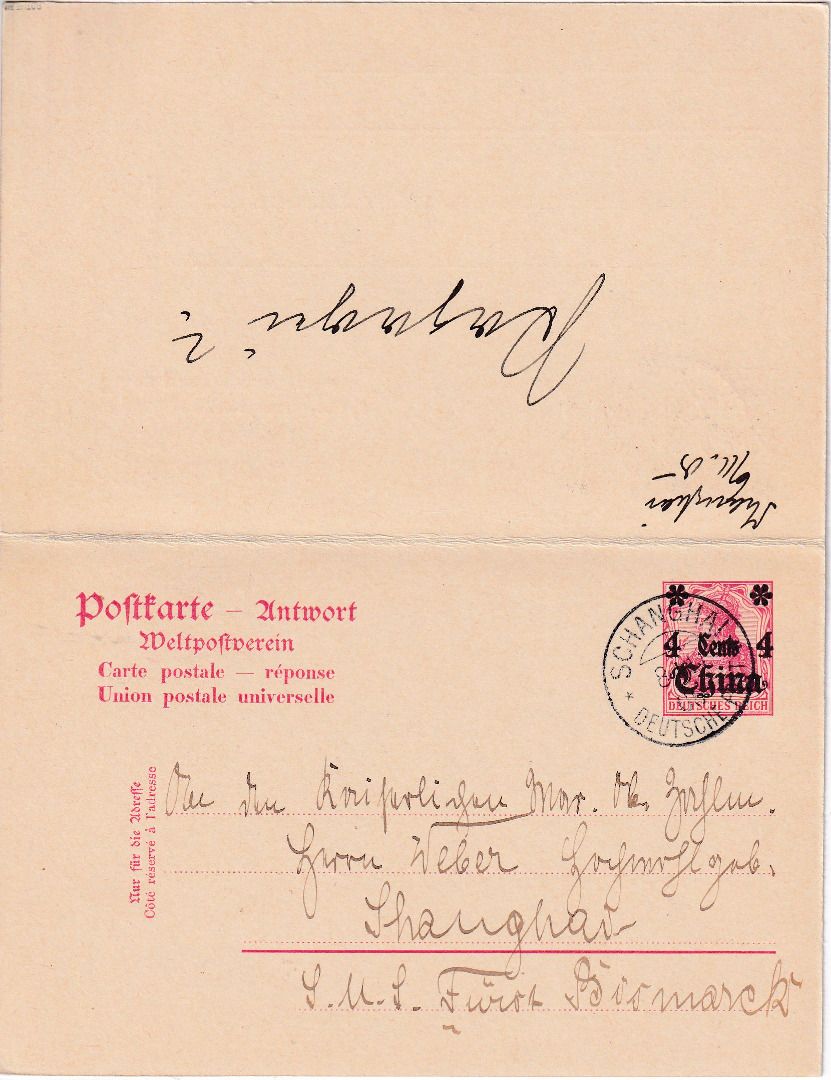 Shanghai
Postkarte – Antwort
Weltpostverein
Carte postale — réponse
Union postale universelle
4 Cents 4
China
DEUTSCHES REICH
SCHANGHAI
DEUTSCHE
Nur für die Adresse
Côté réservé à l'adresse
An den Kaiserlichen Mar. Ob. Zahlm.
Herrn Weber Hochwohlgeb.
Shanghai
S. M. S. Fürst Bismarck